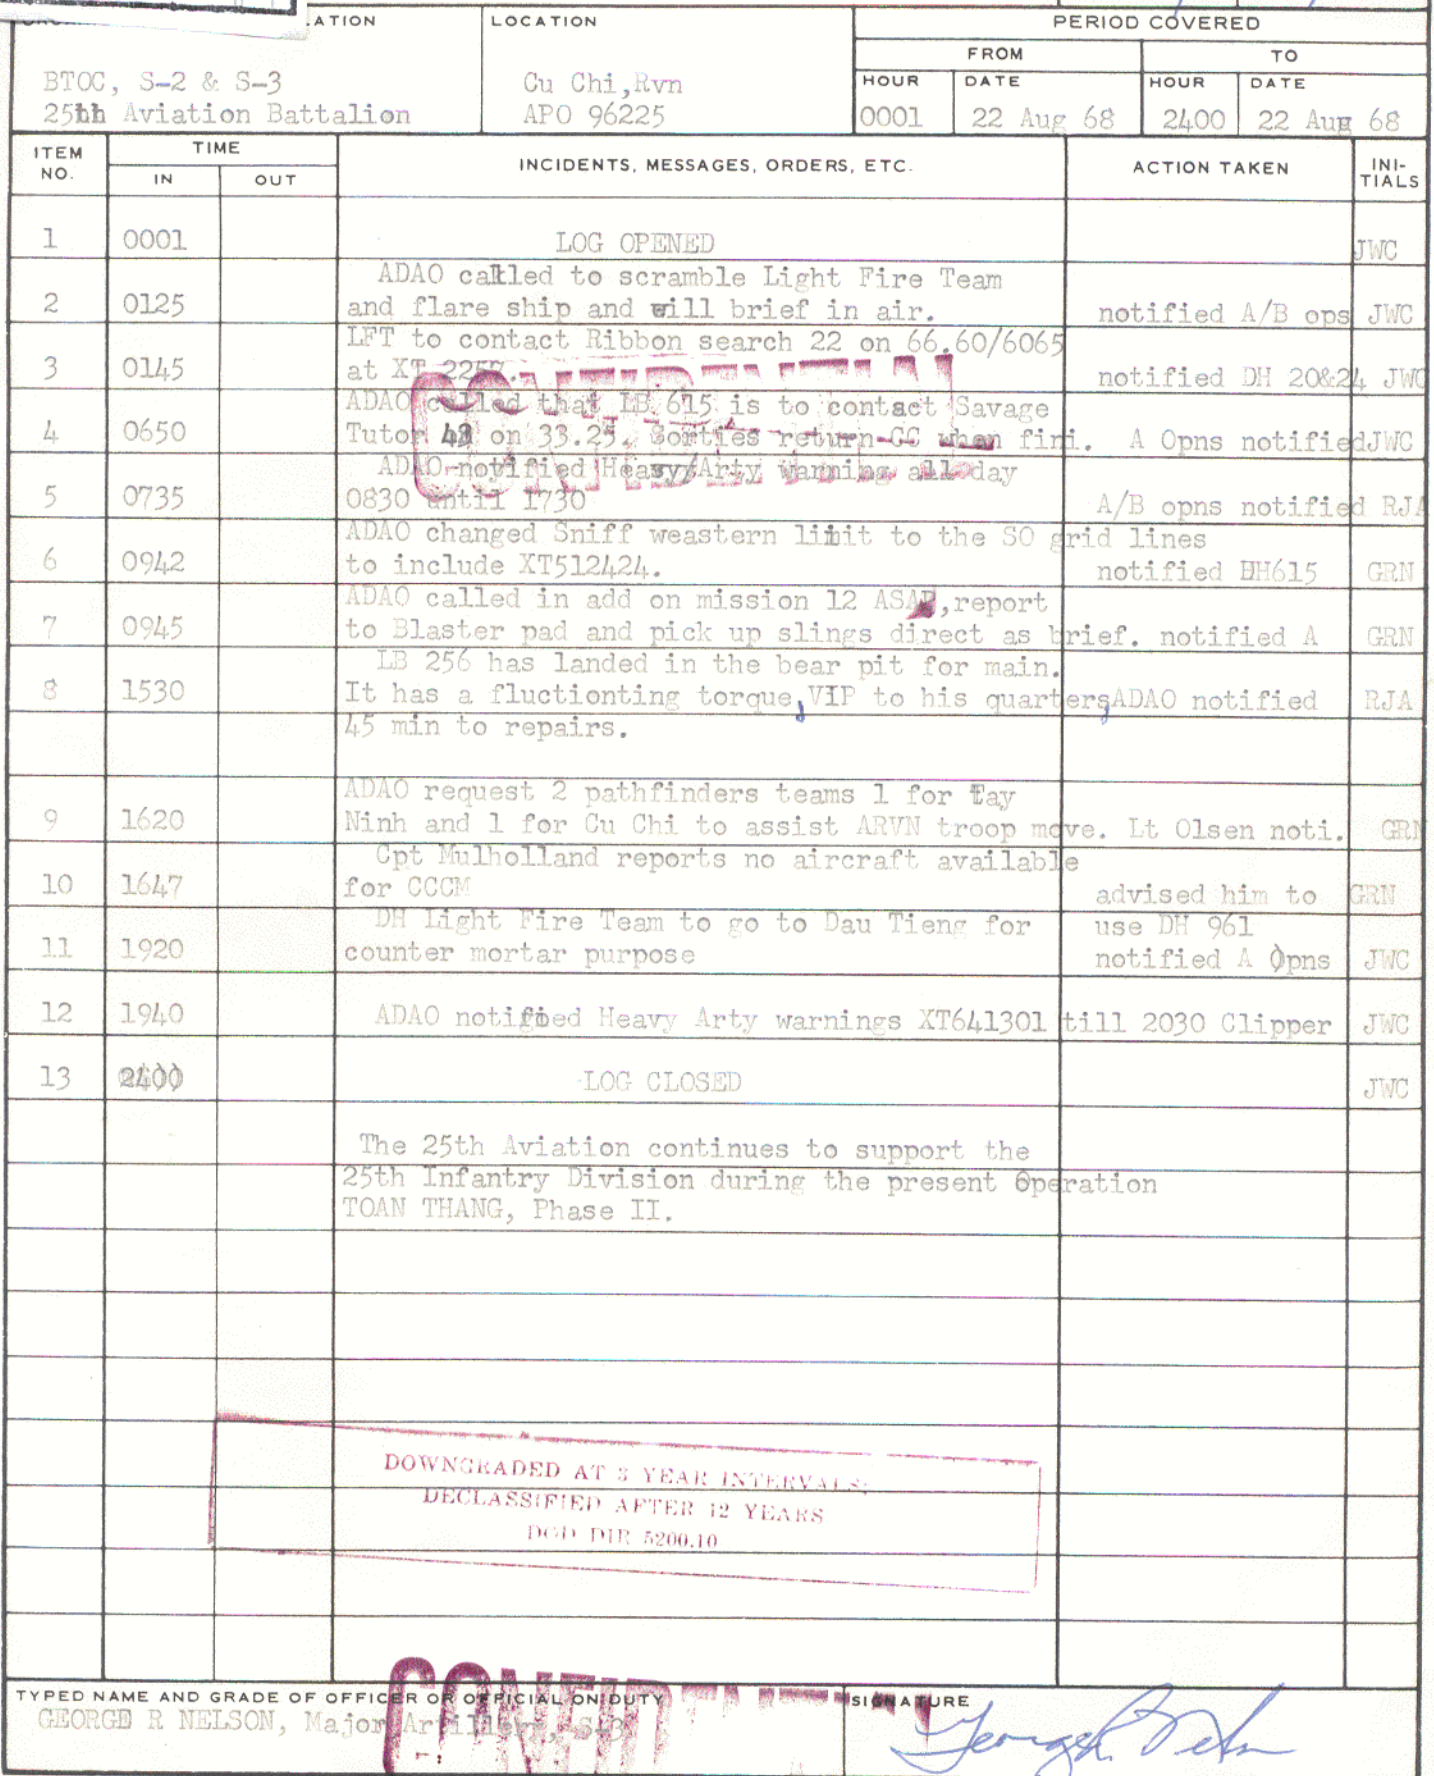 ATION
LOCATION
PERIOD COVERED
FROM
TO
HOUR
DATE
HOUR
DATE
BTOC, S-2 & S-3
25th Aviation Battalion
Cu Chi,Rvn
APO 96225
0001
22 Aug 68
2400
22 Aug 68
ITEM NO.
TIME
IN
OUT
INCIDENTS, MESSAGES, ORDERS, ETC.
ACTION TAKEN
INI-
TIALS
1 0001 LOG OPENED JWC
ADAO called to scramble Light Fire Team
2 0125 and flare ship and will brief in air. notified A/B ops JWC
LFT to contact Ribbon search 22 on 66.60/6065
3 0145 at XT notified DH 20&24 JWC
ADAO called that LB 615 is to contact Savage
4 0650 Tutor on 33.25. Sorties return CC when fini. A Opns notified JWC
ADAO notified Heavy Arty warning all day
5 0735 0830 until 1730 A/B opns notified RJA
ADAO changed Sniff weastern limit to the SO grid lines
6 0942 to include XT512424. notified DH615 GRN
ADAO called in add on mission 12 ASAP,report
7 0945 to Blaster pad and pick up slings direct as brief. notified A GRN
LB 256 has landed in the bear pit for main.
8 1530 It has a fluctionting torque,VIP to his quarters,ADAO notified RJA
45 min to repairs.
ADAO request 2 pathfinders teams 1 for Tay
9 1620 Ninh and 1 for Cu Chi to assist ARVN troop move. Lt Olsen noti. GRN
Cpt Mulholland reports no aircraft available
10 1647 for CCCM advised him to GRN
DH Light Fire Team to go to Dau Tieng for use DH 961
11 1920 counter mortar purpose notified A Opns JWC
12 1940 ADAO notified Heavy Arty warnings XT641301 till 2030 Clipper JWC
13 2400 LOG CLOSED JWC
The 25th Aviation continues to support the
25th Infantry Division during the present Operation
TOAN THANG, Phase II.
DOWNGRADED AT 3 YEAR INTERVALS;
DECLASSIFIED AFTER 12 YEARS
DOD DIR 5200.10
TYPED NAME AND GRADE OF OFFICER OR OFFICIAL ON DUTY
GEORGE R NELSON, Major Artillery, S-3
SIGNATURE
George R Nelson
CONFIDENTIAL
CONFIDENTIAL